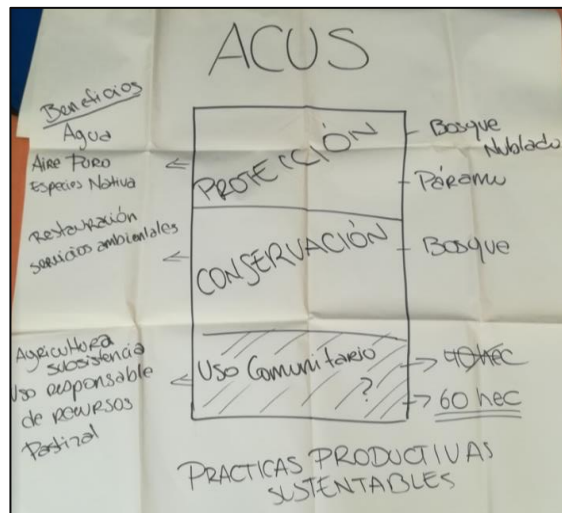 ACUS
Beneficios
Agua
Aire Puro
Especies Nativa
Restauración
servicios ambientales
Agricultura
subsistencia
Uso responsable
de recursos
Pastizal
PROTECCIÓN
CONSERVACIÓN
Uso Comunitario
?
Bosque
Nublado
Páramo
Bosque
40 hec
60 hec
PRACTICAS PRODUCTIVAS
SUSTENTABLES